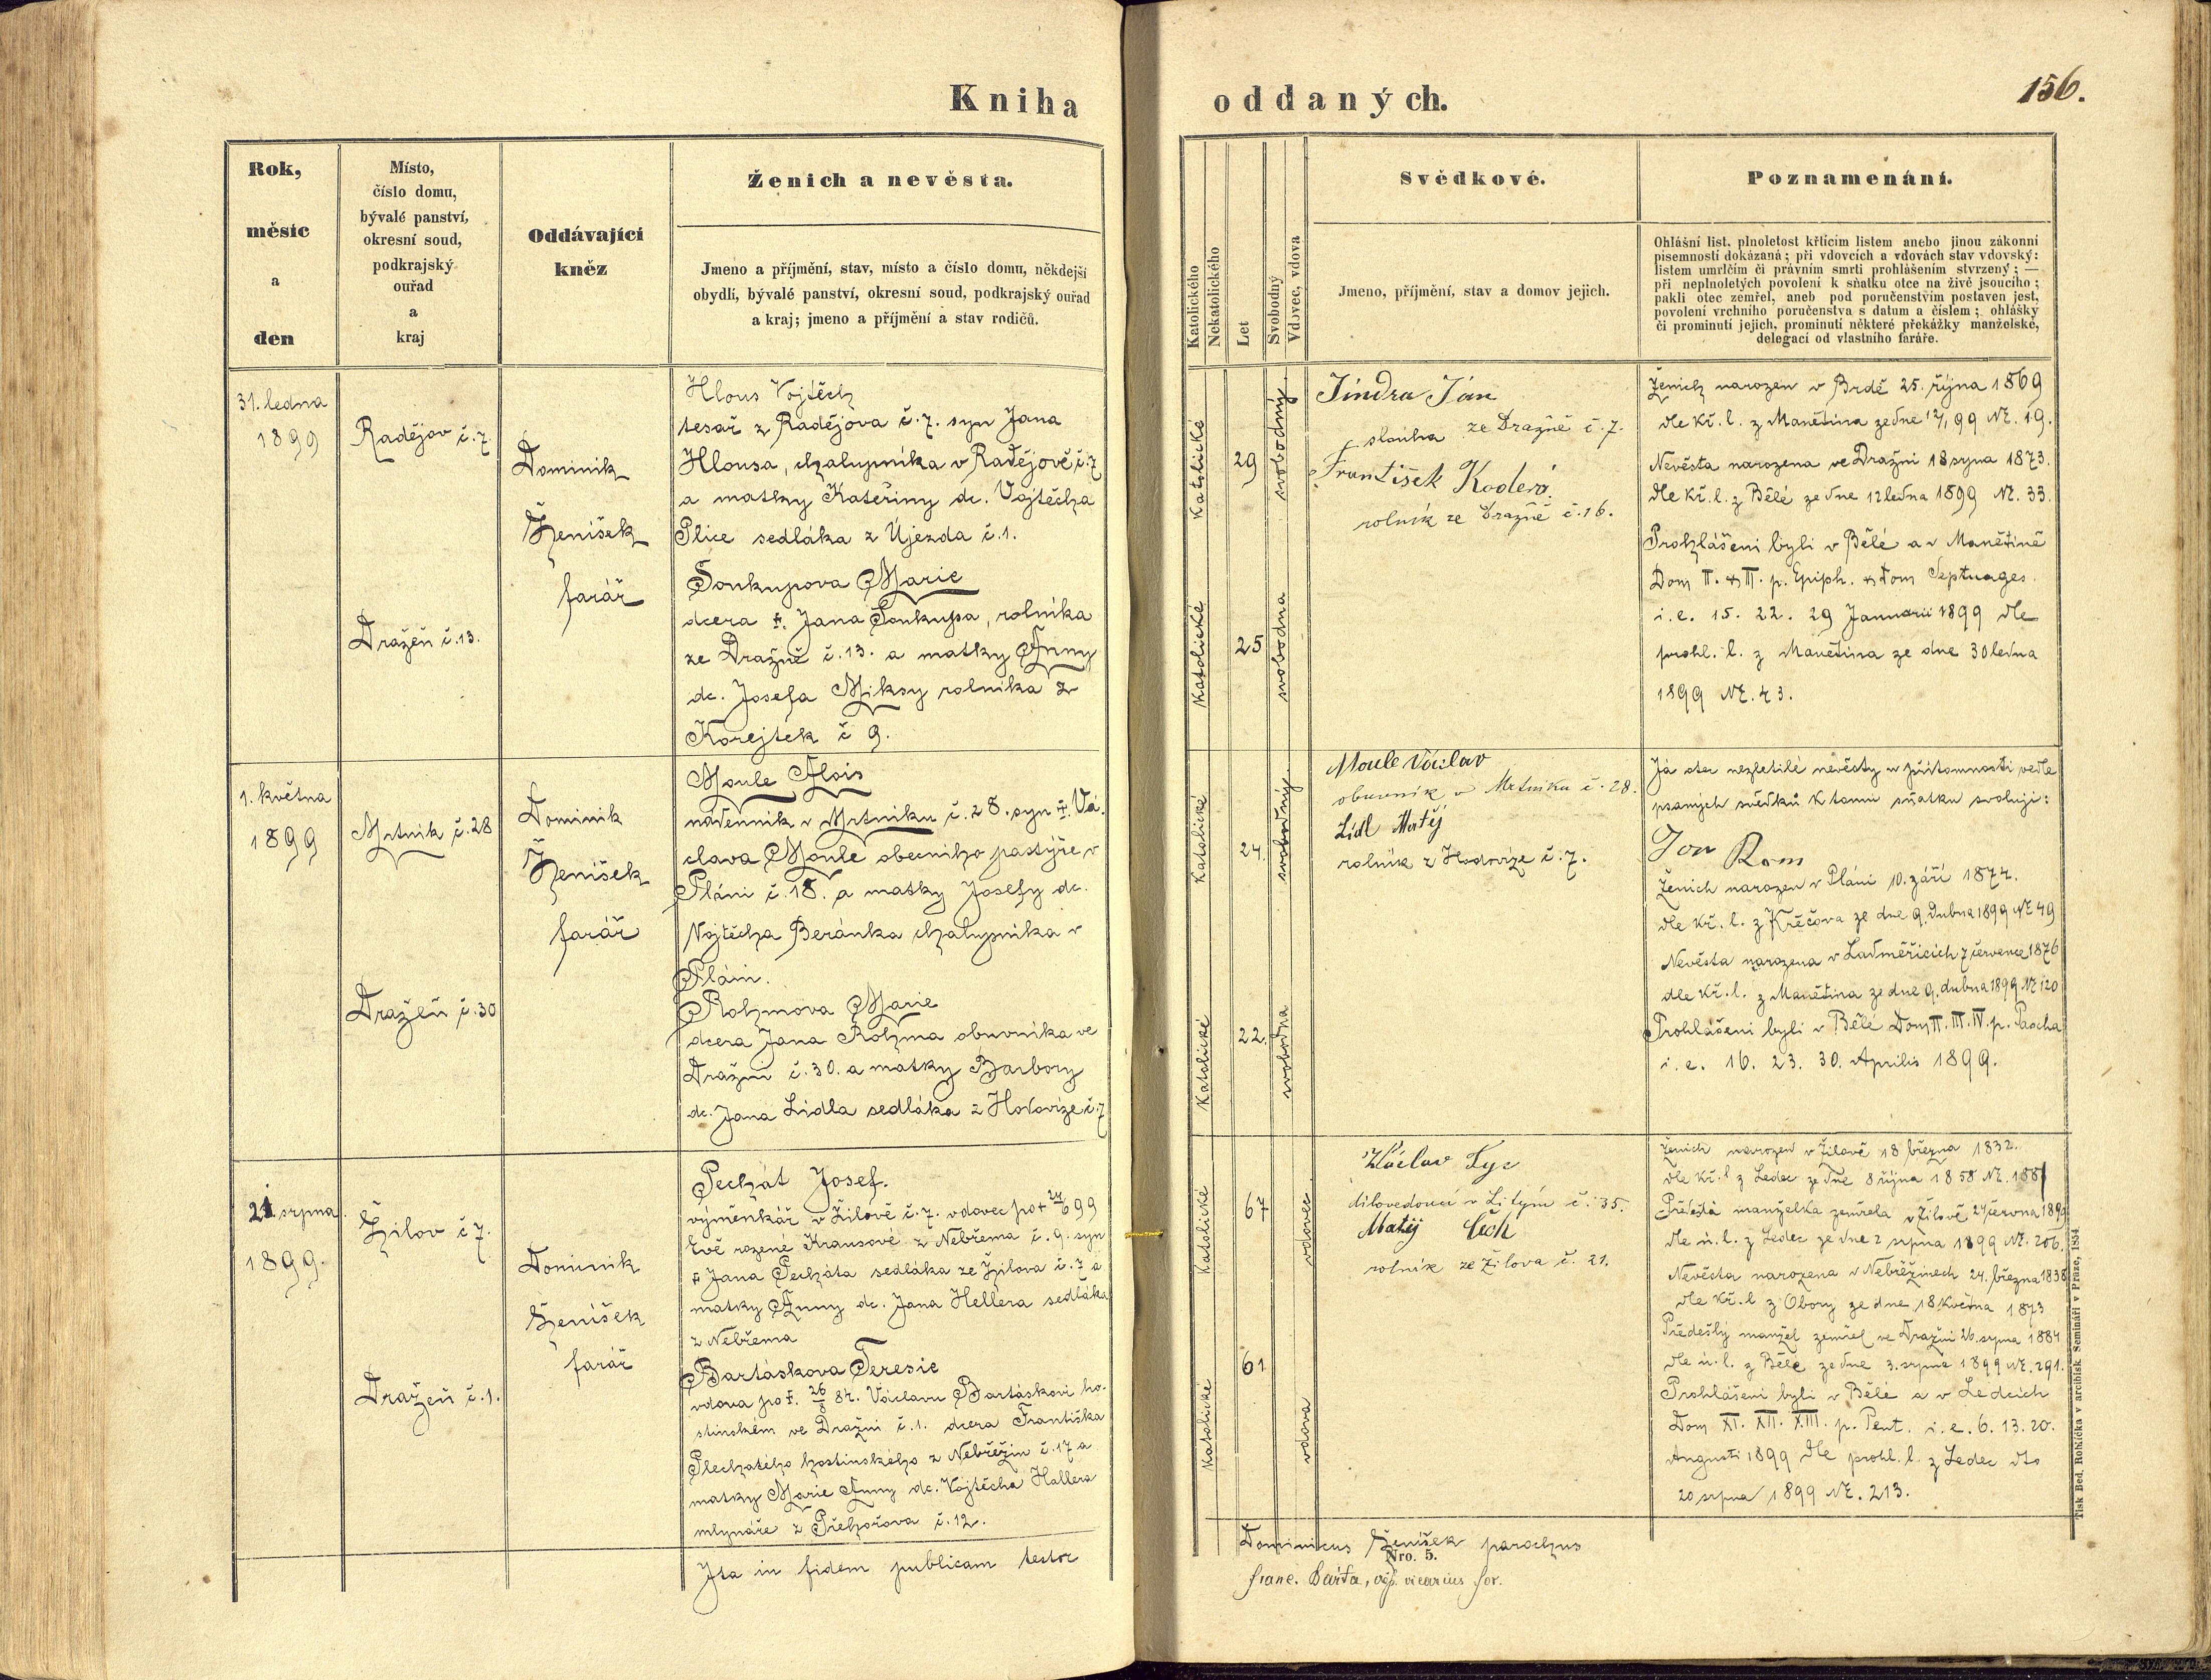 Kniha
Rok,
měsíc
a
den
Místo,
číslo domu,
bývalé panství,
okresní soud,
podkrajský
ouřad
a
kraj
Oddávající
kněz
Ženich a nevěsta.
Jmeno a příjmění, stav, místo a číslo domu, někdejší
obydlí, bývalé panství, okresní soud, podkrajský ouřad
a kraj; jmeno a příjmění a stav rodičů.
31. ledna
1899
Radějov č. 7.
Dražeň č. 13.
Dominik
Ženíšek
farář
Hlous Vojtěch
tesař z Radějova č. 7. syn Jana
Hlousa, chalupníka v Radějově č. 7
a matky Kateřiny dc. Vojtěcha
Plice sedláka z Újezda č. 1.
Soukupova Marie
dcera †. Jana Soukupa, rolníka
ze Dražně č. 13. a matky Anny
dc. Josefa Miksy rolníka z
Korejtek č 9.
1. května
1899
Mrtník č. 28
Dražeň č. 30
Dominik
Ženíšek
farář
Moule Alois
nádenník v Mrtníku č. 28. syn †. Vá-
clava Moule obecního pastýře v
Pláni č. 18. a matky Josefy dc.
Vojtěcha Beránka chalupníka v
Pláni.
Rohmova Marie
dcera Jana Rohma obuvníka ve
Dražni č. 30. a matky Barbory
dc. Jana Lidla sedláka z Hodovíze č. 7
21. srpna
1899.
Žilov č 7.
Dražeň č. 1.
Dominik
Ženíšek
farář
Pechát Josef.
výměnkář v Žilově č. 7. vdovec po † 24/6 99
Evě rozené Krausové z Nebřema č. 9. syn
† Jana Pecháta sedláka ze Žilova č. 7 a
matky Anny dc. Jana Hellera sedláka
z Nebřema
Bartáskova Teresie
vdova po †. 26/8 84. Václavu Bartáskovi ho-
stinském ve Dražni č. 1. dcera Františka
Plechatého hostinského z Nebřežin č. 17 a
matky Marie Anny dc. Vojtěcha Hallera
mlynáře z Přehořova č. 12.
Ita in fidem publicam testor
oddaných.
156.
Katolického
Nekatolického
Let
Svobodný
Vdovec, vdova
Svědkové.
Jmeno, příjmění, stav a domov jejich.
Poznamenání.
Ohlášní list, plnoletost křticím listem anebo jinou zákonní
písemností dokázaná; při vdovcích a vdovách stav vdovský:
listem umrlčím či právním smrti prohlášením stvrzený; —
při neplnoletých povolení k sňatku otce na živě jsoucího;
pakli otec zemřel, aneb pod poručenstvím postaven jest,
povolení vrchního poručenstva s datum a číslem; ohlášky
či prominutí jejich, prominutí některé překážky manželské,
delegací od vlastního faráře.
Katolické
29
svobodný
Katolické
25
svobodna
Jindra Jan
slouha ze Dražně č. 7.
František Kodera
rolník ze Dražně č. 16.
Ženich narozen v Brdě 25. října 1869
dle kř. l. z Manětína ze dne 12/1 99 Nr. 19.
Nevěsta narozena ve Dražni 18 srpna 1873.
dle kř. l. z Bělé ze dne 12 ledna 1899 Nr. 33.
Prohlášeni byli v Bělé a v Manětíně
Dom II. & III. p. Epiph. & Dom Septuages.
i. e. 15. 22. 29 Januarii 1899 dle
prohl. l. z Manětína ze dne 30 ledna
1899 Nr. 43.
Katolické
24.
svobodný
Katolické
22.
svobodna
Moule Václav
obuvník v Mrtníku č. 28.
Lídl Matěj
rolník z Hodovíze č. 7.
Já otec nezletilé nevěsty v přítomnosti vedle
psaných svědků k tomu sňatku svoluji:
Jan Rom
Ženich narozen v Pláni 10. září 1874.
dle kř. l. z Křečova ze dne 9. dubna 1899 Nr 49
Nevěsta narozena v Ladměřicích 7 července 1876
dle kř. l. z Manětína ze dne 9. dubna 1899 Nr 120
Prohlášeni byli v Bělé Dom II. III. IV. p. Pascha
i. e. 16. 23. 30. Aprilis 1899.
Katolické
67
vdovec
Katolické
61
vdova
Václav Lyc
dílovedoucí v Litým č. 35.
Matěj Čech
rolník ze Žilova č. 21.
Ženich narozen v Žilově 18 března 1832.
dle kř. l z Ledec ze dne 8 října 1858 Nr. 188
Předešlá manželka zemřela v Žilově 24 června 1899
dle ú. l. z Ledec ze dne 2 srpna 1899 Nr. 206.
Nevěsta narozena v Nebřežinech 24. března 1838
dle kř. l z Obory ze dne 18 května 1873
Předešlý manžel zemřel ve Dražni 26. srpna 1884
dle ú. l. z Bělé ze dne 3. srpna 1899 Nr. 291.
Prohlášeni byli v Bělé a v Ledcích
Dom XI. XII. XIII. p. Pent. i. e. 6. 13. 20.
Augusti 1899 dle prohl. l. z Ledec dto
20 srpna 1899 Nr. 213.
Dominicus Ženíšek parochus
Nro. 5.
franc. Bárta, vicarius for.
Tisk Bed. Rohlíčka v arcibisk. Semináři v Praze, 1854